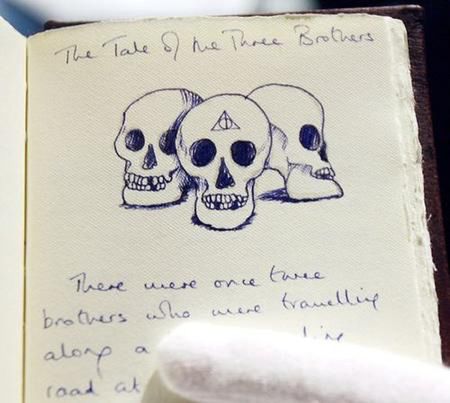 The Tale of the Three Brothers
There were once three
brothers who were travelling
along a
road at